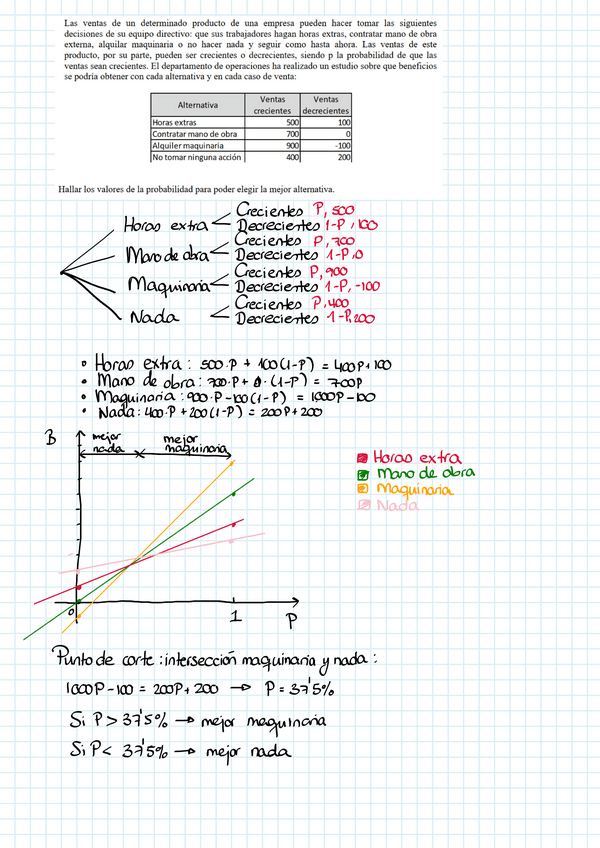 Las ventas de un determinado producto de una empresa pueden hacer tomar las siguientes
decisiones de su equipo directivo: que sus trabajadores hagan horas extras, contratar mano de obra
externa, alquilar maquinaria o no hacer nada y seguir como hasta ahora. Las ventas de este
producto, por su parte, pueden ser crecientes o decrecientes, siendo p la probabilidad de que las
ventas sean crecientes. El departamento de operaciones ha realizado un estudio sobre que beneficios
se podría obtener con cada alternativa y en cada caso de venta:
Alternativa Ventas crecientes Ventas decrecientes
Horas extras 500 100
Contratar mano de obra 700 0
Alquiler maquinaria 900 -100
No tomar ninguna acción 400 200
Hallar los valores de la probabilidad para poder elegir la mejor alternativa.
Horas extra Crecientes P, 500
Decrecientes 1-P, 100
Mano de obra Crecientes P, 700
Decrecientes 1-P, 0
Maquinaria Crecientes P, 900
Decrecientes 1-P, -100
Nada Crecientes P, 400
Decrecientes 1-P, 200
• Horas extra: 500·P + 100(1-P) = 400P+100
• Mano de obra: 700·P + 0·(1-P) = 700P
• Maquinaria: 900·P-100(1-P) = 1000P-100
• Nada: 400·P + 200(1-P) = 200P+200
B
mejor nada
mejor maquinaria
Horas extra
Mano de obra
Maquinaria
Nada
0
1
P
Punto de corte: intersección maquinaria y nada:
1000P-100 = 200P+200 → P = 37'5%
Si P > 37'5% → mejor maquinaria
Si P < 37'5% → mejor nada